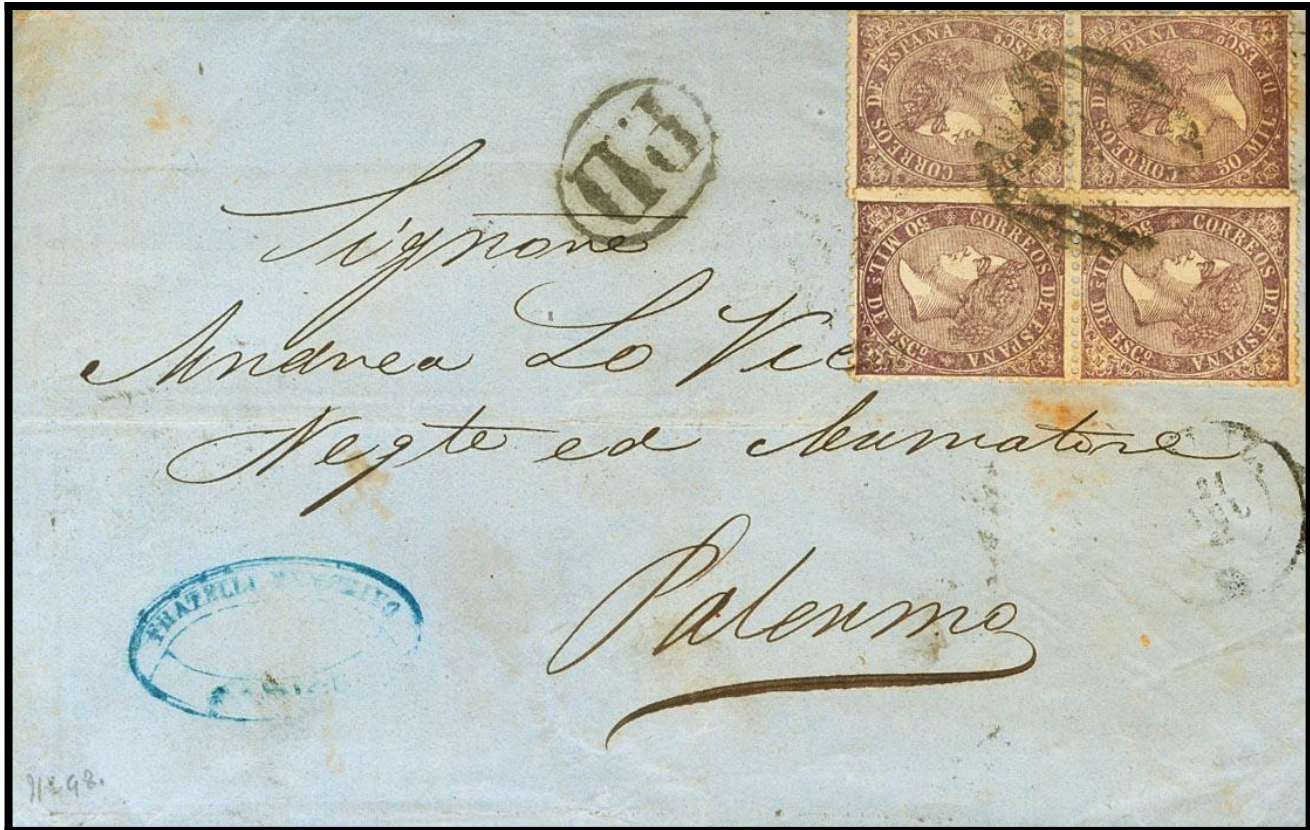 PD
CORREOS DE ESPAÑA
50 MIL DE ESCº
CORREOS DE ESPAÑA
50 MILS DE ESCº
CORREOS DE ESPAÑA
50 MILS DE ESCº
CORREOS DE ESPAÑA
Signore
Andrea Lo Vic
Negte ed Armatore
Palermo
FRATELLI
21
Nº 98.